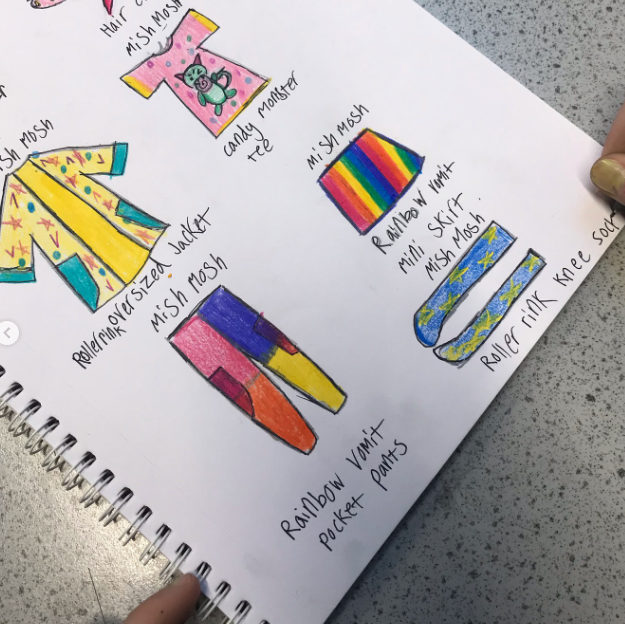 Hair
Mish Mosh
candy monster
tee
Mish Mosh
Rainbow vomit
mini skirt
Mish Mosh
Roller rink knee socks
Mosh
Rollerrink oversized jacket
Mish Mosh
Rainbow vomit
pocket pants